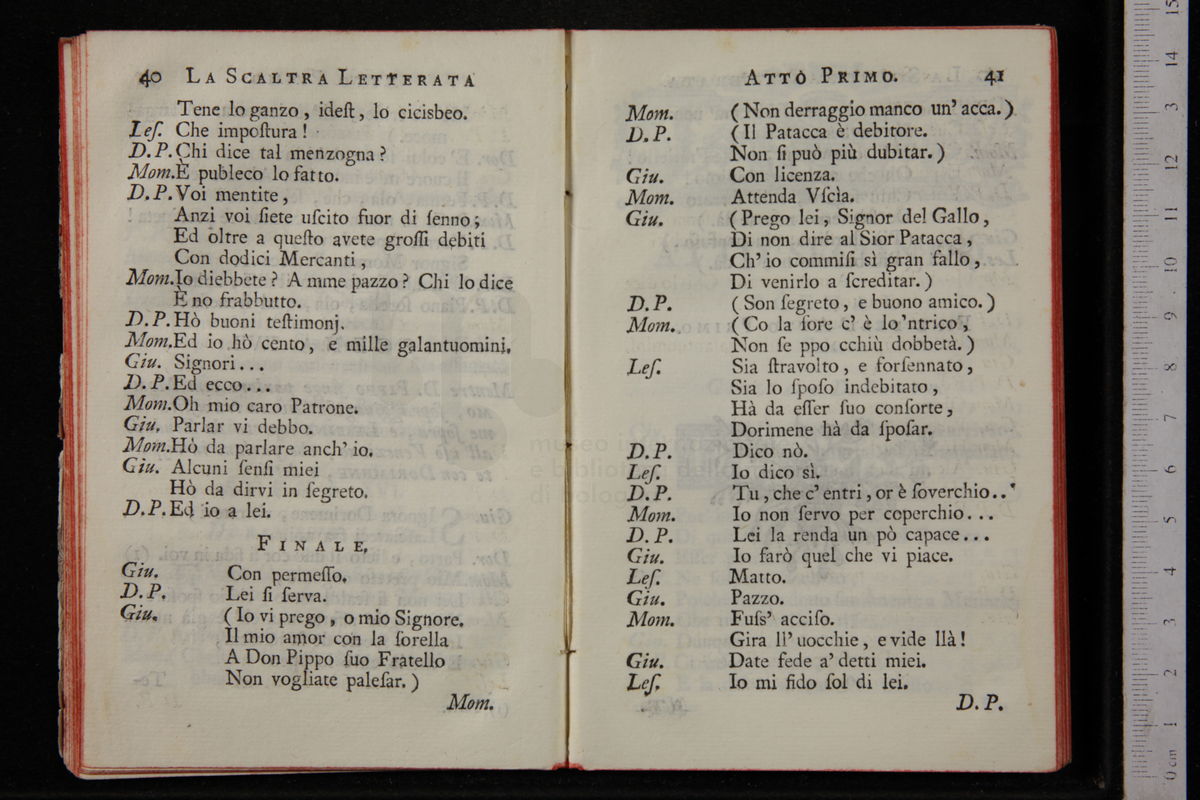 40 LA SCALTRA LETTERATA
Tene lo ganzo , ideſt, lo cicisbeo.
Leſ. Che impoſtura !
D. P. Chi dice tal menzogna ?
Mom. È publeco lo fatto.
D. P. Voi mentite ,
Anzi voi ſiete uſcito fuor di ſenno ;
Ed oltre a queſto avete groſſi debiti
Con dodici Mercanti ,
Mom. Io diebbete ? A mme pazzo ? Chi lo dice
È no frabbutto.
D. P. Hò buoni teſtimonj.
Mom. Ed io hò cento , e mille galantuomini.
Giu. Signori . . .
D. P. Ed ecco . . .
Mom. Oh mio caro Patrone.
Giu. Parlar vi debbo.
Mom. Hò da parlare anch' io.
Giu. Alcuni ſenſi miei
Hò da dirvi in ſegreto.
D. P. Ed io a lei.
FINALE.
Giu. Con permeſſo.
D. P. Lei ſi ſerva.
Giu. ( Io vi prego , o mio Signore.
Il mio amor con la ſorella
A Don Pippo ſuo Fratello
Non vogliate paleſar. )
Mom.
ATTÒ PRIMO. 41
Mom. ( Non derraggio manco un' acca. )
D. P. ( Il Patacca è debitore.
Non ſi può più dubitar. )
Giu. Con licenza.
Mom. Attenda Vſcìa.
Giu. ( Prego lei , Signor del Gallo ,
Di non dire al Sior Patacca ,
Ch' io commiſi sì gran fallo ,
Di venirlo a ſcreditar. )
D. P. ( Son ſegreto , e buono amico. )
Mom. ( Co la ſore c' è lo 'ntrico ,
Non ſe ppo cchiù dobbetà. )
Leſ. Sia ſtravolto , e forſennato ,
Sia lo ſpoſo indebitato ,
Hà da eſſer ſuo conſorte ,
Dorimene hà da ſpoſar.
D. P. Dico nò.
Leſ. Io dico sì.
D. P. Tu , che c' entri , or è ſoverchio . .
Mom. Io non ſervo per coperchio . . .
D. P. Lei la renda un pò capace . . .
Giu. Io farò quel che vi piace.
Leſ. Matto.
Giu. Pazzo.
Mom. Fuſs' acciſo.
Gira ll' uocchie , e vide llà !
Giu. Date fede a' detti miei.
Leſ. Io mi fido ſol di lei.
D. P.